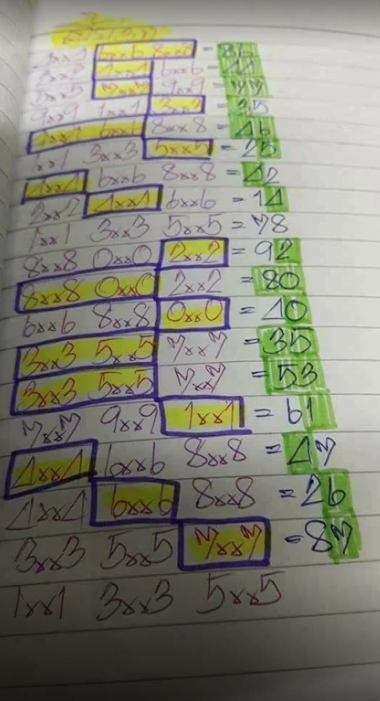 6xx6 8xx8 = 86
1xx1 6xx6 = 11
9xx9 = 77
9xx9 1xx1 3xx3 = 35
1xx1 6xx6 8xx8 = 16
1xx1 3xx3 5xx5 = 25
1xx1 6xx6 8xx8 = 12
1xx1 6xx6 = 11
1xx1 3xx3 5xx5 = 78
8xx8 0xx0 2xx2 = 92
8xx8 0xx0 2xx2 = 80
6xx6 8xx8 0xx0 = 10
3xx3 5xx5 7xx7 = 35
3xx3 5xx5 7xx7 = 53
7xx7 9xx9 1xx1 = 61
1xx1 6xx6 8xx8 = 17
1xx1 6xx6 8xx8 = 26
3xx3 5xx5 7xx7 = 87
1xx1 3xx3 5xx5